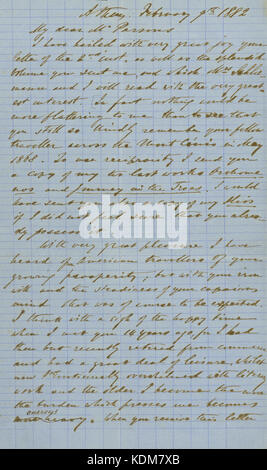 Athens, February 9th 1882
My dear Mr Parsons
I have hailed with very great joy your
letter of the 2d inst. as well as the splendid
volume you sent me, and which Mrs Schlie-
mann and I will read with the very great-
est interest. In fact nothing could be
more flattering to me than to see that
you still so kindly remember your fellow
traveller across the Mount Cenis in May
1868. To use reciprocity I send you
a copy of my two last works Orchome-
nos and Journey in the Troad. I could
have sent you also a copy of my Ilios
if I did not feel sure that you alrea-
dy possess it.
With very great pleasure I have
heard of American travellers of your
growing prosperity; but with your iron
will and the steadiness of your capacious
mind that was of course to be expected.
I think with a sigh of the happy time
when I met you 14 years ago, for I had
then but recently retired from commerce
and had a great deal of leisure, whilst
now I continually overwhelmed with literary
work and the older I become the more
the burden which presses me becomes
onerous
When you receive this letter
alamy
Image ID: KDM7XB
www.alamy.com